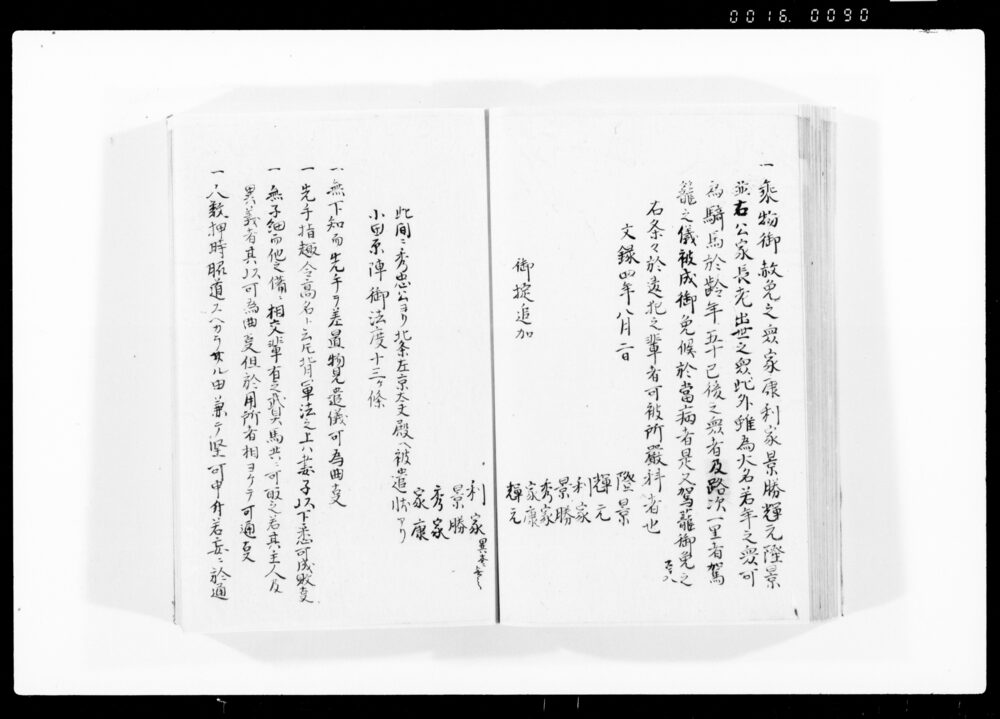 0016. 0090
一 乗物御赦免之衆家康利家景勝輝元隆景
并右公家長老出世之衆此外雖為大名若年之衆可
為騎馬於齢年五十已後之衆者及路次一里者駕
籠之儀被成御免候於當病者是又駕籠御免之
右条々於違犯之輩者可被所嚴科者也
文録四年八月二日
隆景
輝元
利家
景勝
秀家
家康
輝元
御掟追加
利家
景勝
秀家
家康
此間ニ秀忠公ヨリ北条左京太夫殿ヘ被遣
小田原陣御法度十三ヶ條
一 無下知而先手ヲ差置物見遣儀可為曲事
一 先手指趣令高名ト云氏背軍法之上ハ妻子以下悉可成敗事
一 無子細而他之備ニ相交輩有之武具馬共ニ可取之若其主人及
異義者其以可為曲事但於用所者相ヨケテ可通事
一 人数押時脇道スヘカラサル由兼テ堅可申付若妄ニ於通